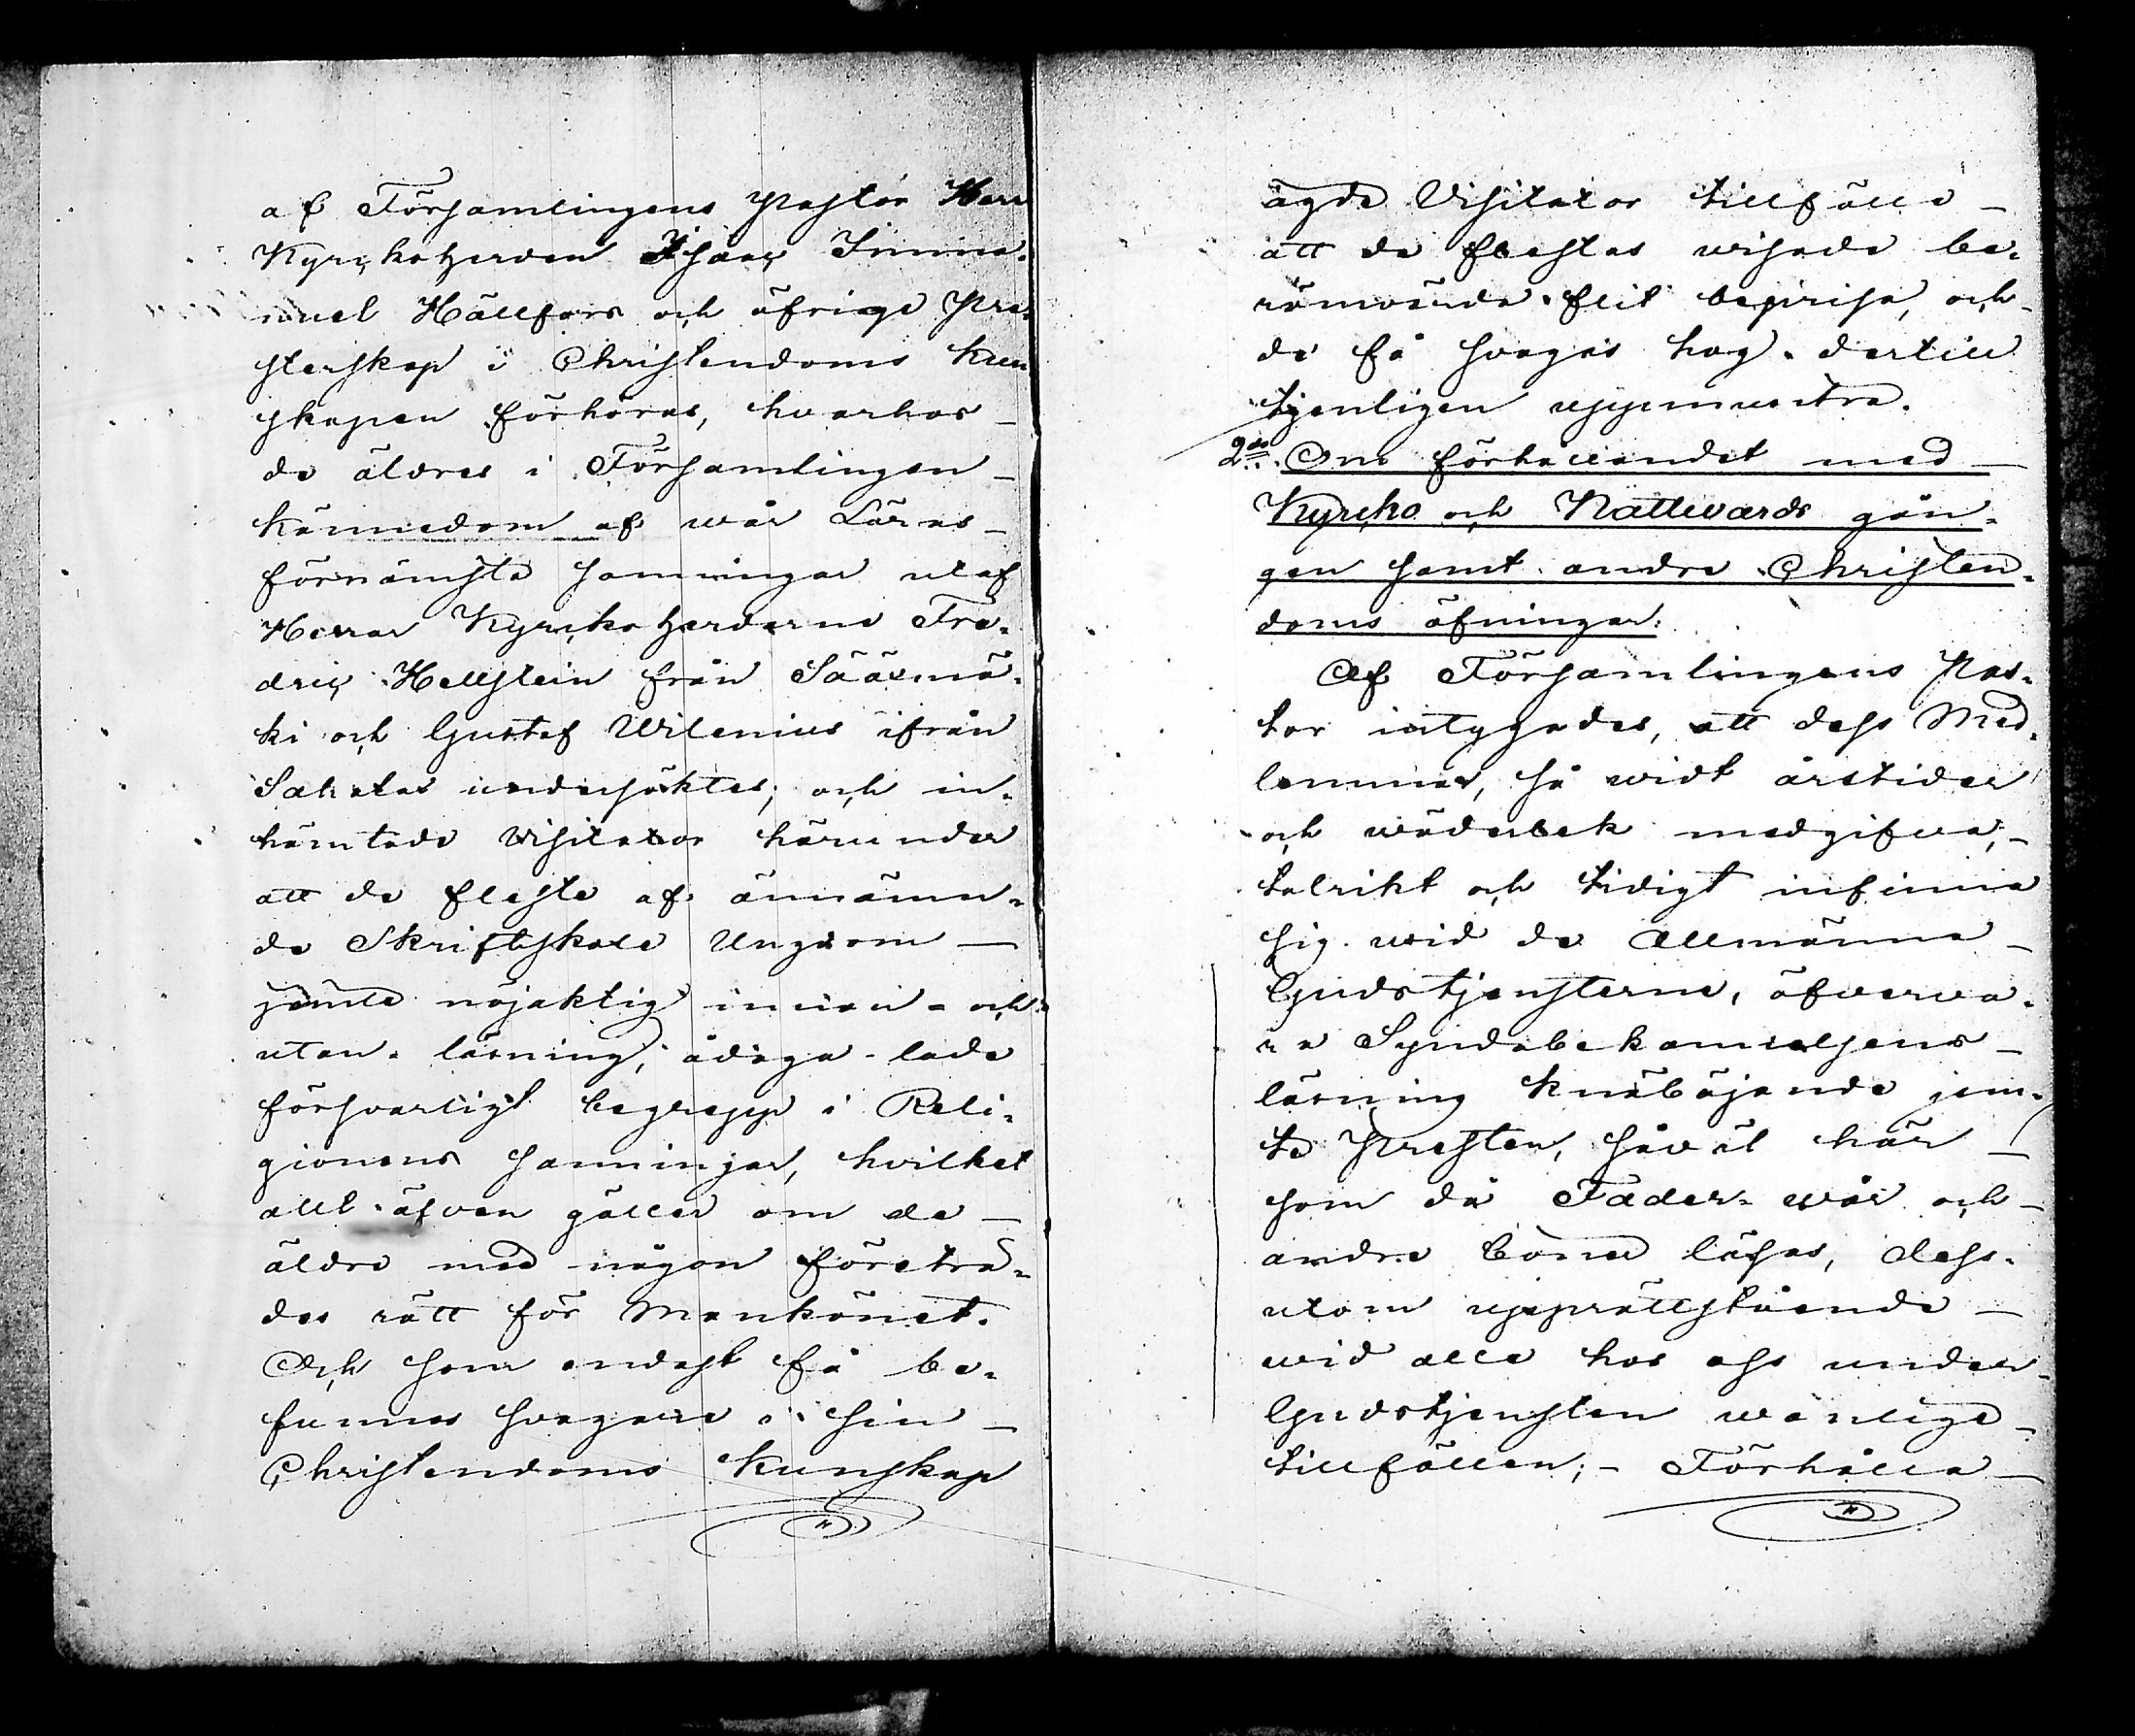 af Församlingens Pastor Herr
Kyrckoherden Isaac Imma-
nuel Hällfors och öfrige Pre-
sterskap i Christendoms Kun-
skapen förhöras, hvarhos
de äldres i Församlingen
kännedom af wår Läras
förnämsta sanningar utaf
Herrar Kyrckoherdarne Fre-
dric Hellstein från Sääxmä-
ki och Gustaf Wilenius ifrån
Sahalax undersöktes; och in-
hämtade Visitator härunder
att de fleste af ännämn-
de Skriftskole Ungdom
jämte nöjaktig innan- och
utan- läsning, ådaga-lade
försvarligt begrepp i Reli-
gionens sanningar, hvilket
allt äfven gäller om de
äldre med någon företrä-
des rätt för Mankönet.
Och som endast få be-
funnos svagare i sin
Christendoms Kunskap
ägde Visitator tillfälle
att de flestas wisade be-
römvärda flit beprisa, och
de få svagas hog dertill
tjenligen uppmuntra.
2do. Om förhållandet med
Kyrcko och Nattvards gån-
gen samt andra Christen-
doms öfningar.
Af Församlingens Pas-
tor intygades, att dess Med-
lemmar, så widt årstider
och wäderlek medgifva,
talrikt och tidigt infinna
sig wid de Allmänna
Gudstjensterne, öfverva-
ra Syndabekännelsens
läsning knäböjande jem-
te Presten, såväl här
som då Fader- wår och
andra böner läsas, dess-
utom upprättstående
wid alla hos oss under
Gudstjensten wanliga
tillfällen; - Förhålla